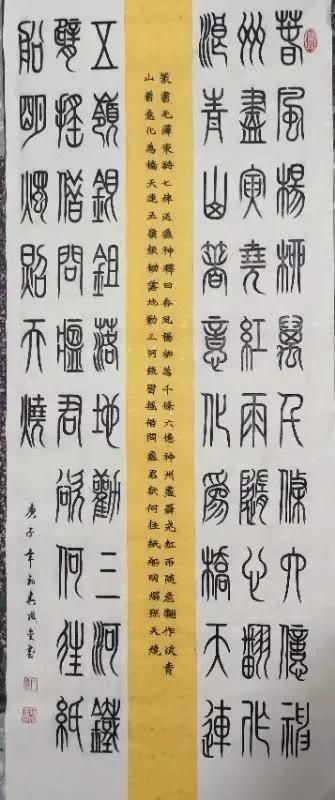 春風楊柳萬千條六億神
州盡舜堯紅雨隨心翻作
浪青山著意化為橋天連
篆書毛澤東詩七律送瘟神釋曰春風楊柳萬千條六億神州盡舜堯紅雨随意翻作浪青
山着意化為橋天連五嶺銀鋤落地動三河鐵臂摇借問瘟君欲何往紙船明燭照天燒
五嶺銀鋤落地動三河鐵
臂搖借問瘟君欲何往紙
船明燭照天燒
庚子年初春